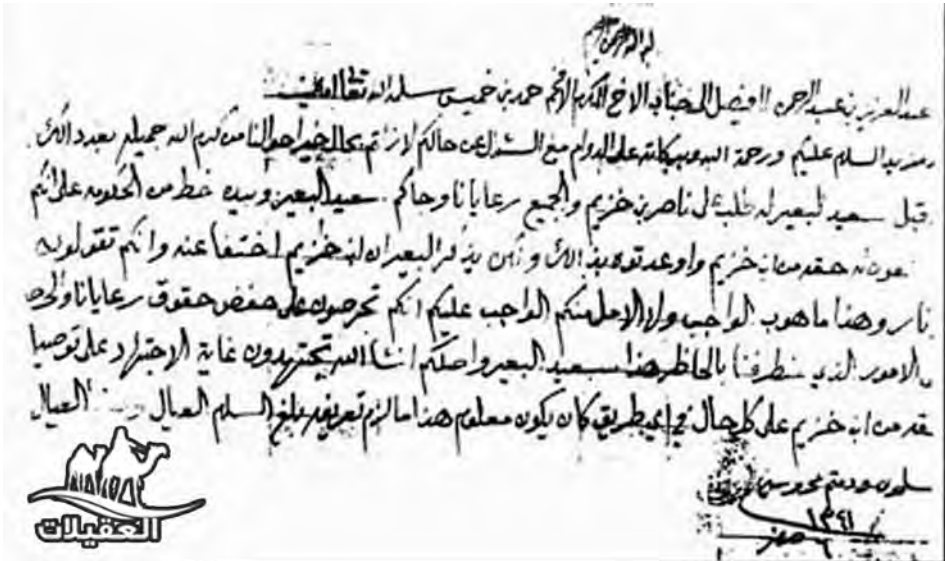 بسم الله الرحمن الرحيم
عبد العزيز بن عبد الرحمن الفيصل الى جناب الاخ المكرم الافخم حمد بن خميس سلمه الله تعالى
مزيد السلام عليكم ورحمة الله وبركاته على الدوام مع السئوال عن حالكم لا زلتم بحال خير احوالنا من كرم الله جميله بعد ذالك
قبل سعيد البعير له طلب على ناصر بن خزيم والجميع رعايانا وجاكم سعيد البعير وبيده خط من الحكومه على انكم
حقه من ابن خزيم واوعدتوه بذالك و يذكر البعير ان ابن خزيم اختفا عنه وانكم تقولون
وهذا ما هوب الواجب ولا الامل منكم الواجب عليكم انكم تحرصون على حفض حقوق رعايانا
الامور الذي بالحاظر هذا سعيد البعير واصلكم انشا الله تجتهدون غاية الاجتهاد على
من ابن خزيم على كل حال في اي طريق كان يكون معلوم هذا ما لزم تعريفه بلغ السلام العيال العيال
يسلمون ودمتم محروسين
١٣٤١
٦ صفر
العقيلات